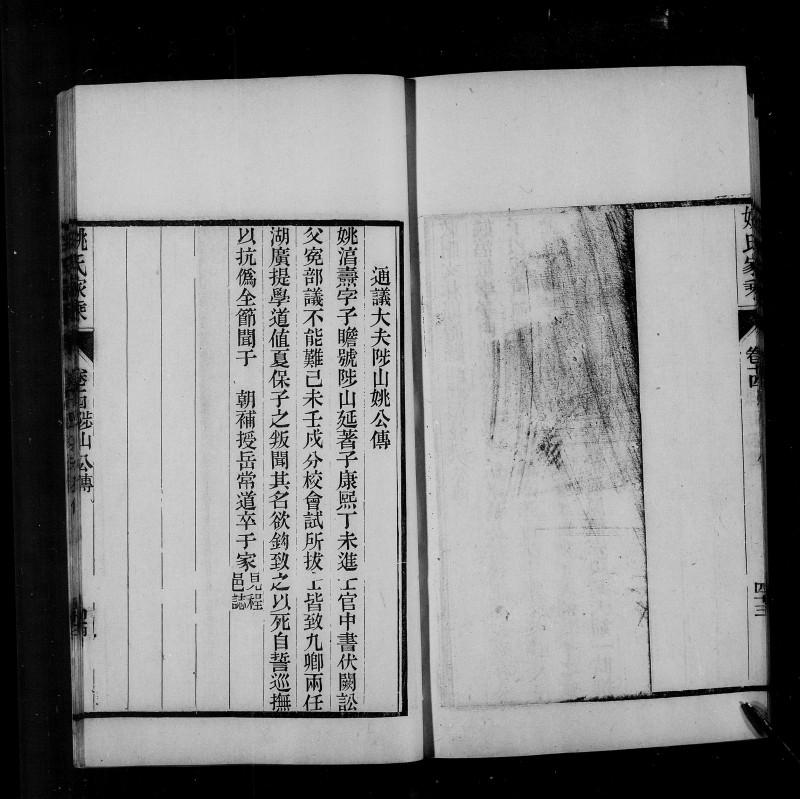 姚氏家乘
卷十四
四十三
通議大夫陟山姚公傳
姚淳燾字子瞻號陟山延著子康熙丁未進士官中書伏闕訟
父寃部議不能難己未壬戌分校會試所拔士皆致九卿兩任
湖廣提學道值夏保子之叛聞其名欲鉤致之以死自誓巡撫
以抗僞全節聞于　朝補授岳常道卒于家見程
邑誌
姚氏家乘
陟山公傳